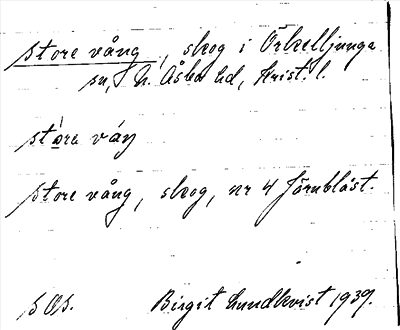 store vång, skog i Örkelljunga
sn, N. Åsbo hd, Krist. l.
store våŋ
store vång, skog, nr 4 Järnblåst.
s OS. Birgit Lundkvist 1939.